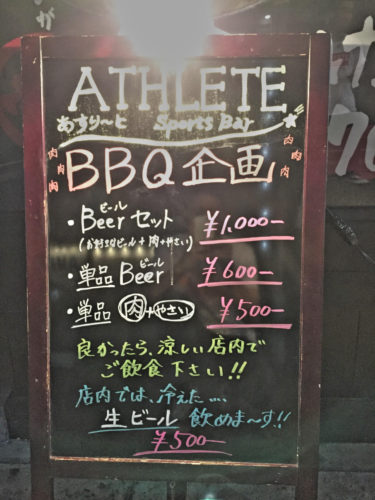 ATHLETE
あすり〜と Sports Bar
BBQ 企画
肉 肉 肉 肉 肉 肉
ビール
・Beer セット ¥1,000-
(お好きなビール+肉+やさい)
ビール
・単品 Beer ¥600-
・単品 肉+やさい ¥500-
良かったら、涼しい店内で
ご飲食下さい!!
店内では、冷えた....
生ビール 飲めま〜す!!
¥500-